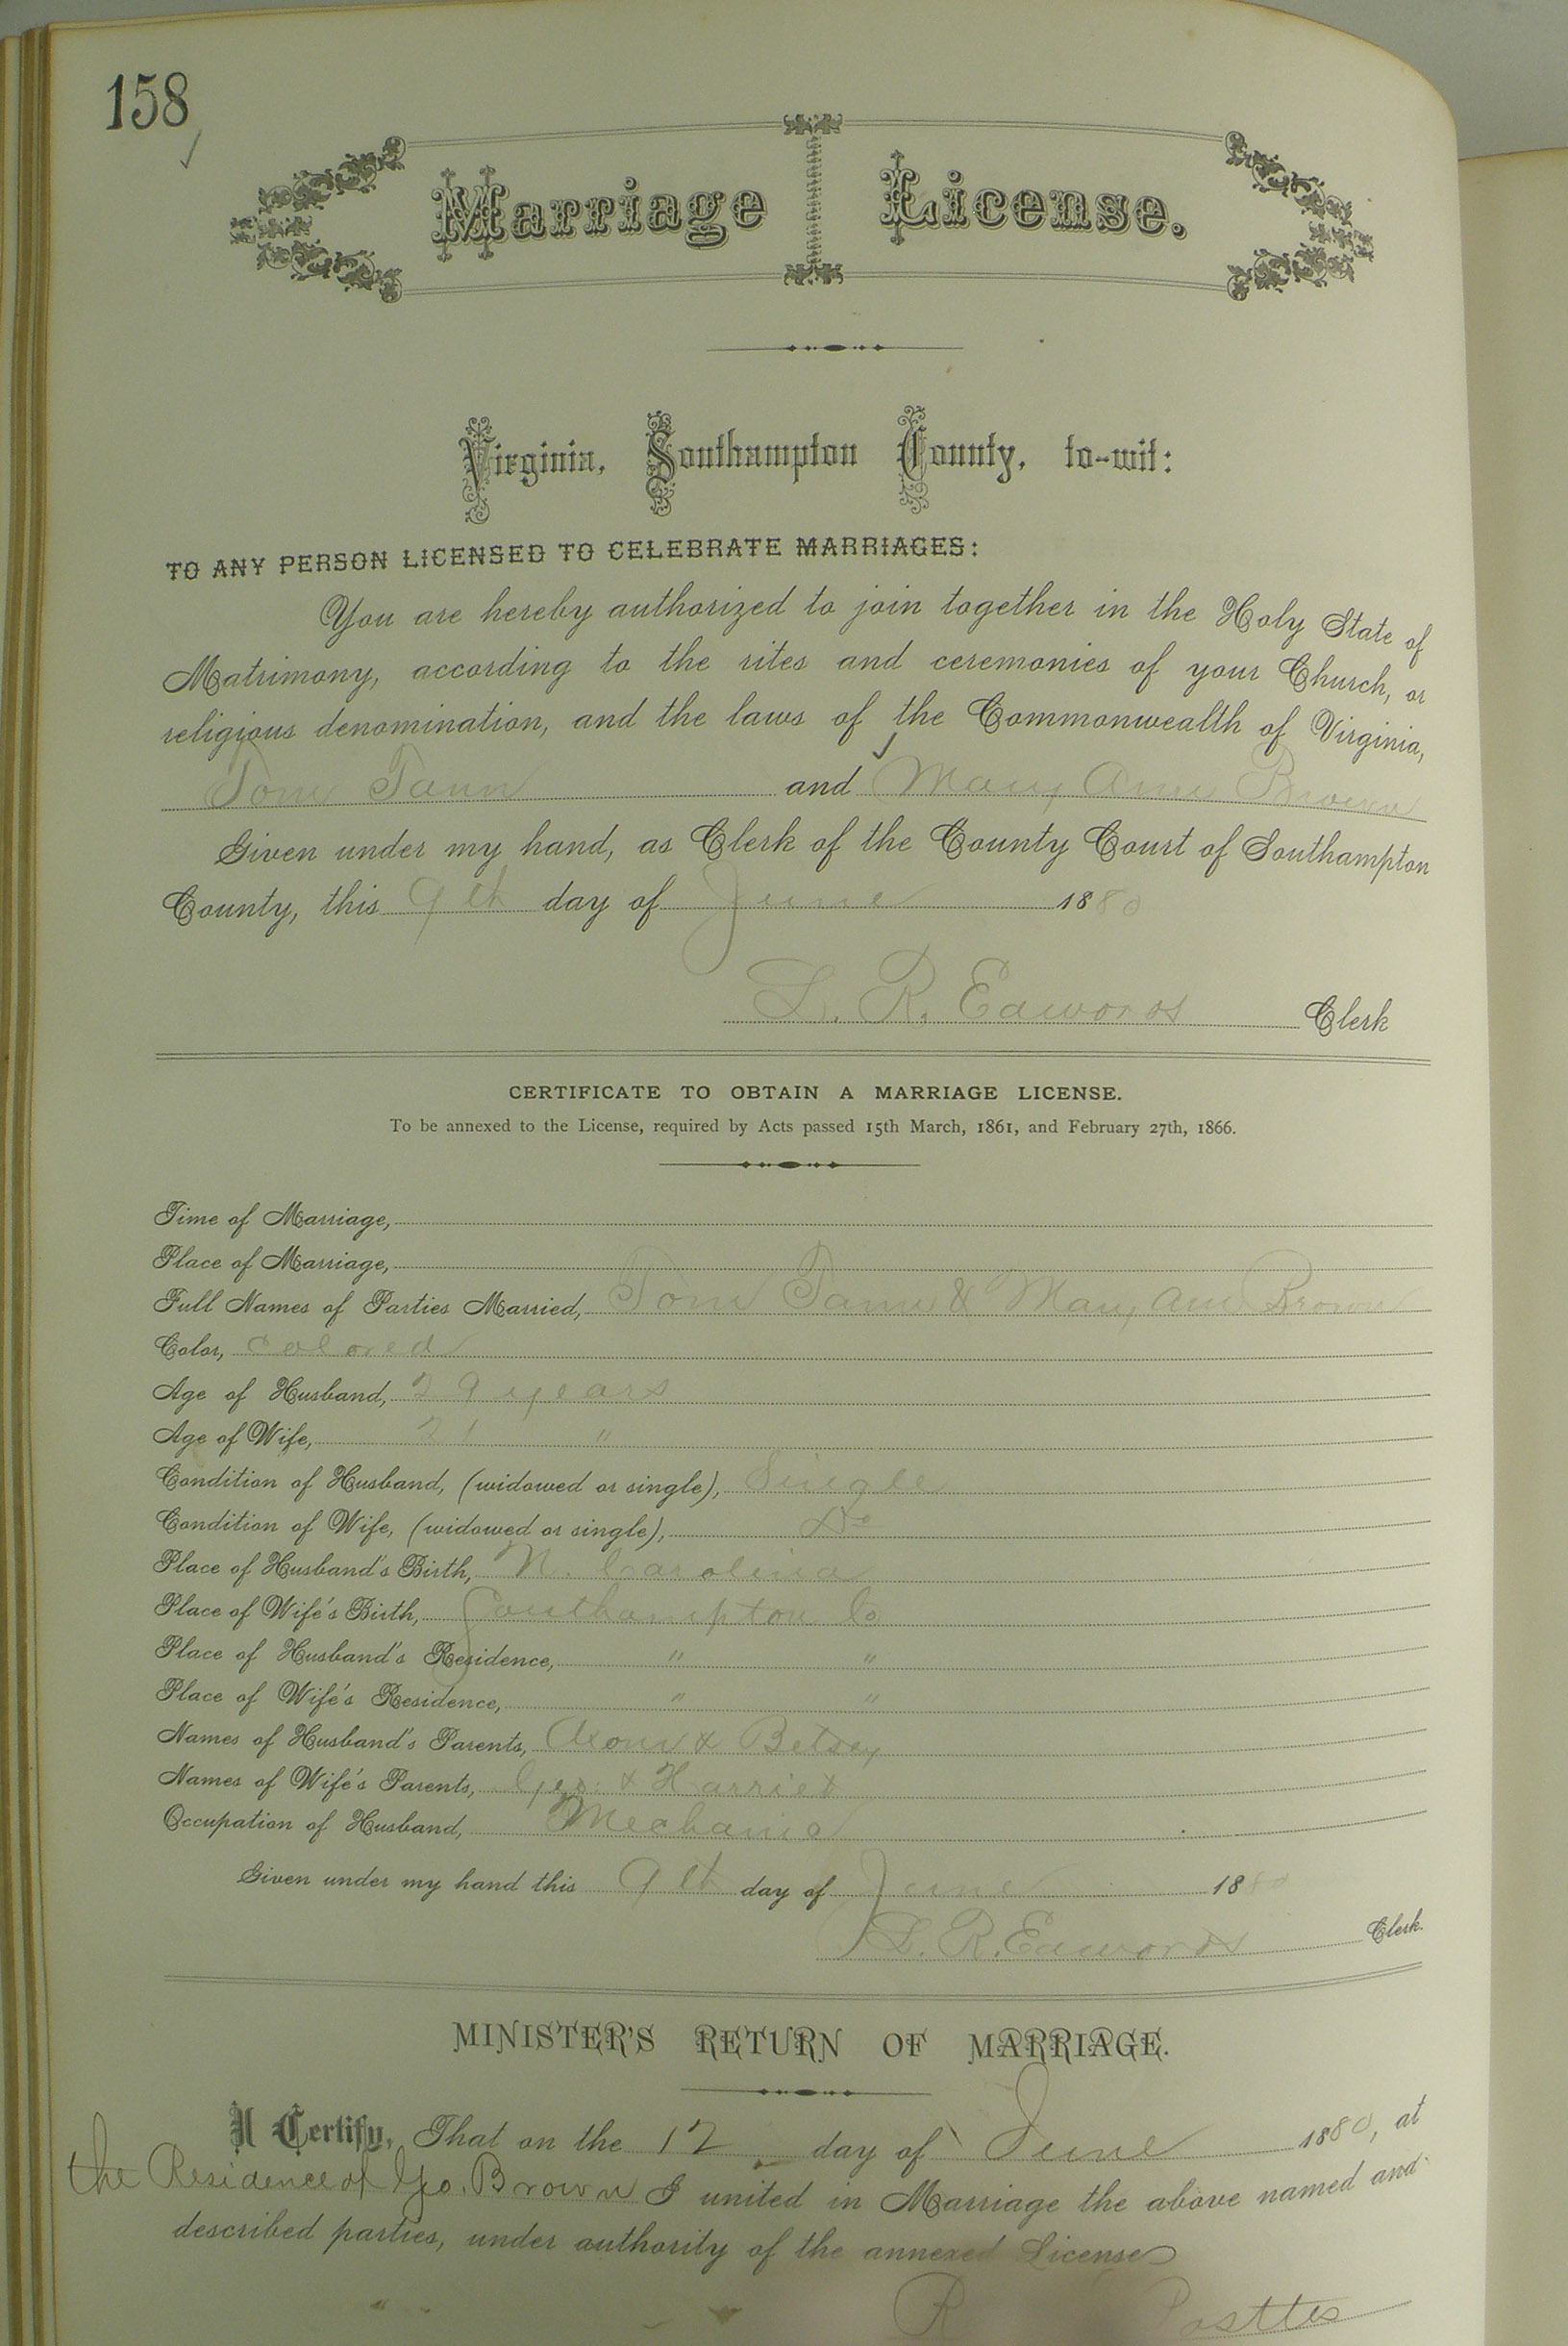 158
Marriage License.
Virginia, Southampton County, to-wit:
TO ANY PERSON LICENSED TO CELEBRATE MARRIAGES:
You are hereby authorized to join together in the Holy State of
Matrimony, according to the rites and ceremonies of your Church, or
religious denomination, and the laws of the Commonwealth of Virginia,
Tom Tann and Mary Ann Brown
Given under my hand, as Clerk of the County Court of Southampton
County, this 9th day of June 1880
L. R. Edwards Clerk
CERTIFICATE TO OBTAIN A MARRIAGE LICENSE.
To be annexed to the License, required by Acts passed 15th March, 1861, and February 27th, 1866.
Time of Marriage,
Place of Marriage,
Full Names of Parties Married, Tom Tann & Mary Ann Brown
Color, Colored
Age of Husband, 29 years
Age of Wife, 21 "
Condition of Husband, (widowed or single), Single
Condition of Wife, (widowed or single), Do
Place of Husband's Birth, N. Carolina
Place of Wife's Birth, Southampton Co
Place of Husband's Residence, " "
Place of Wife's Residence, " "
Names of Husband's Parents, & Betsey
Names of Wife's Parents, Geo. & Harriet
Occupation of Husband, Mechanic
Given under my hand this 9th day of June 1880
L. R. Edwards Clerk.
MINISTER'S RETURN OF MARRIAGE.
I Certify, That on the 12 day of June 1880, at
the Residence of Geo. Brown I united in Marriage the above named and
described parties, under authority of the annexed License
R